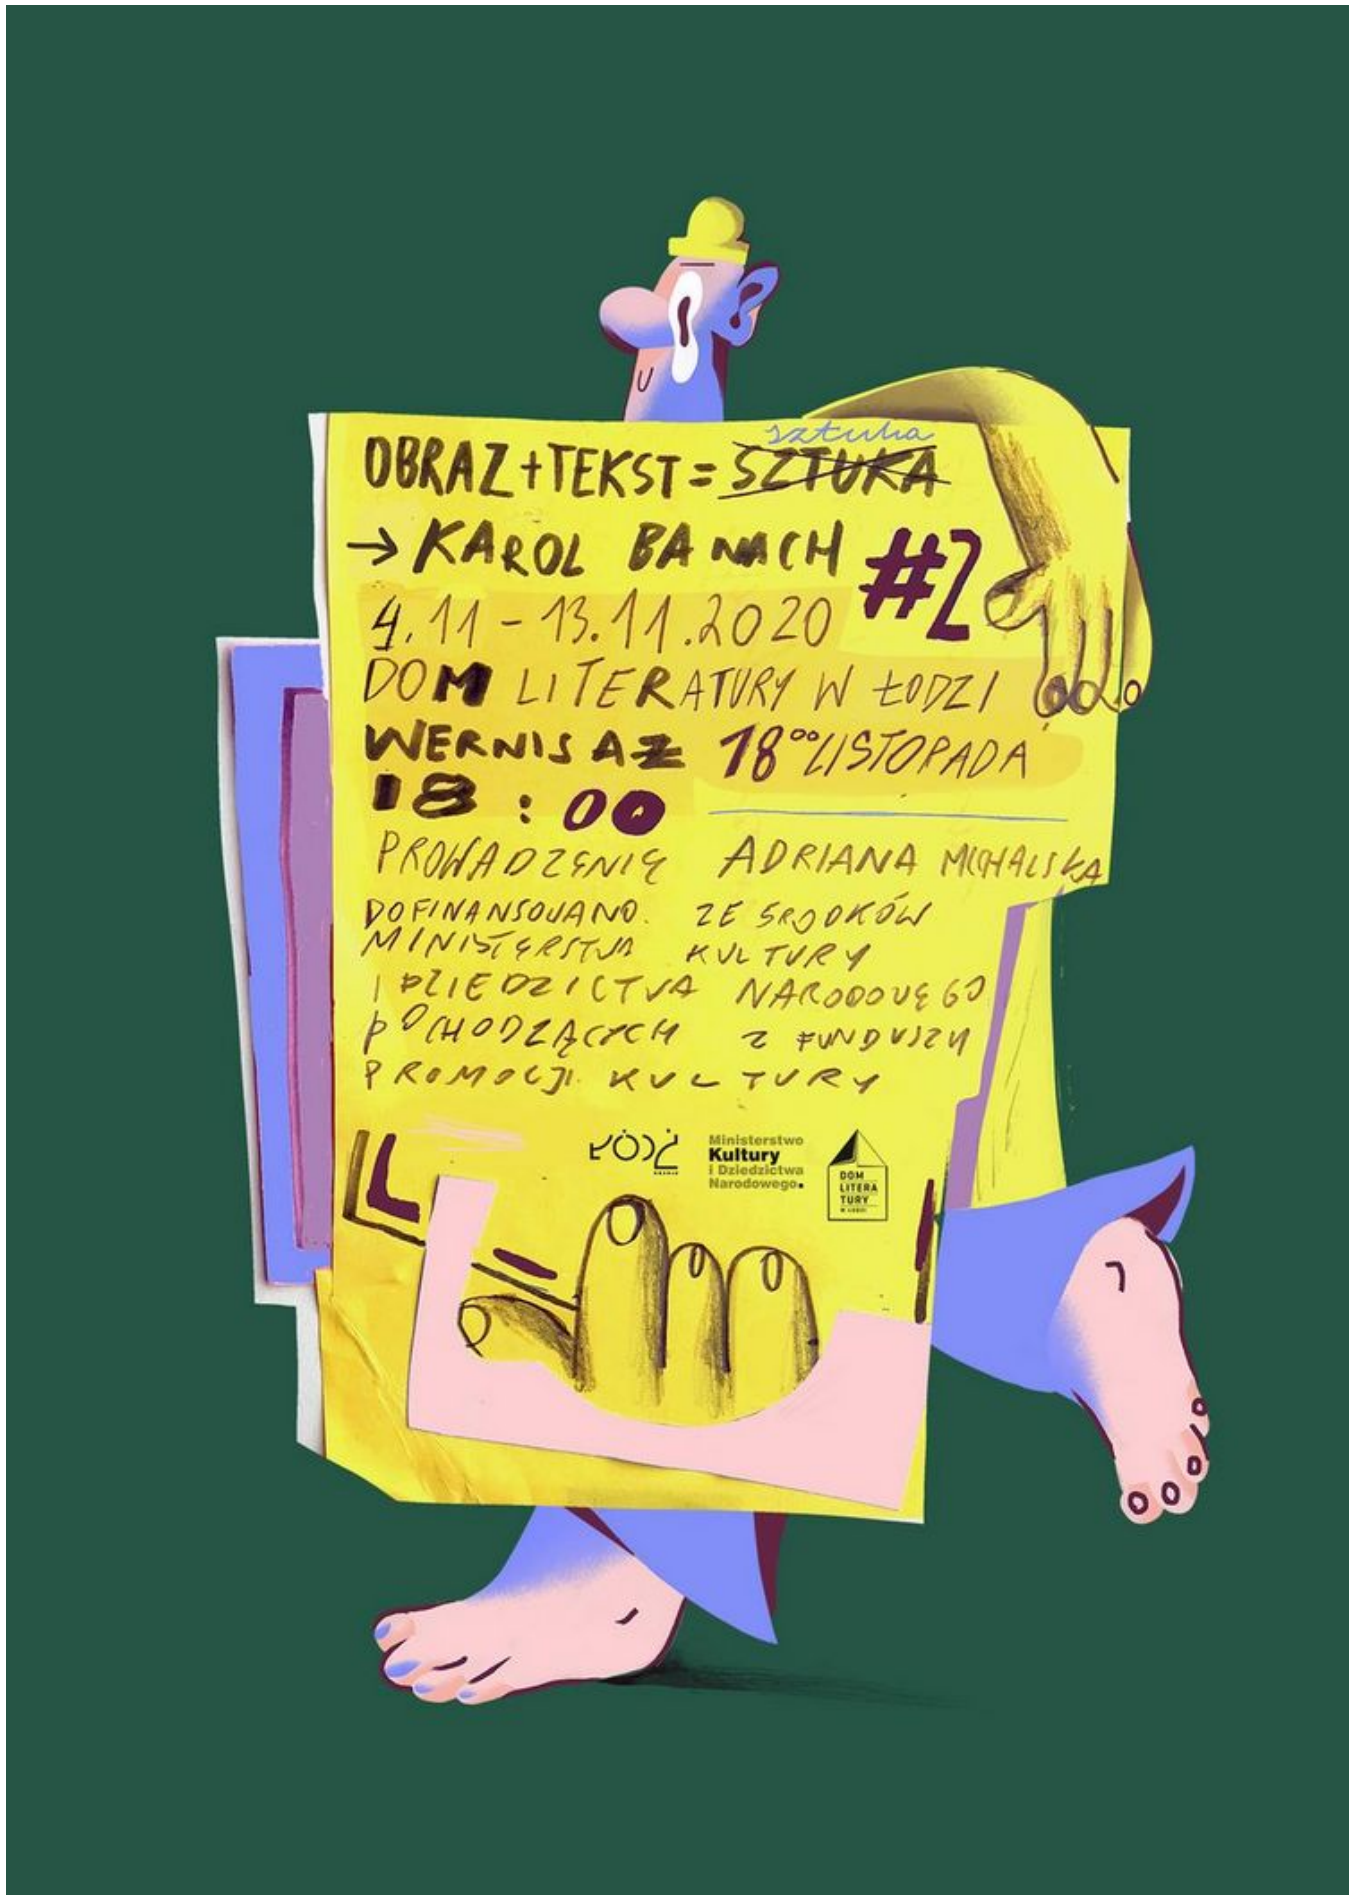 sztuka
OBRAZ+TEKST= SZTUKA
→ KAROL BANACH #2
4.11 - 13.11.2020
DOM LITERATURY W ŁODZI
WERNISAŻ 18⁰⁰ LISTOPADA
18:00
PROWADZENIE ADRIANA MICHALSKA
DOFINANSOWANO. ZE ŚRODKÓW
MINISTERSTWA KULTURY
I DZIEDZICTWA NARODOWEGO
POCHODZĄCYCH Z FUNDUSZU
PROMOCJI KULTURY
ŁÓDŹ
Ministerstwo
Kultury
i Dziedzictwa
Narodowego.
DOM
LITERA
TURY
W ŁODZI